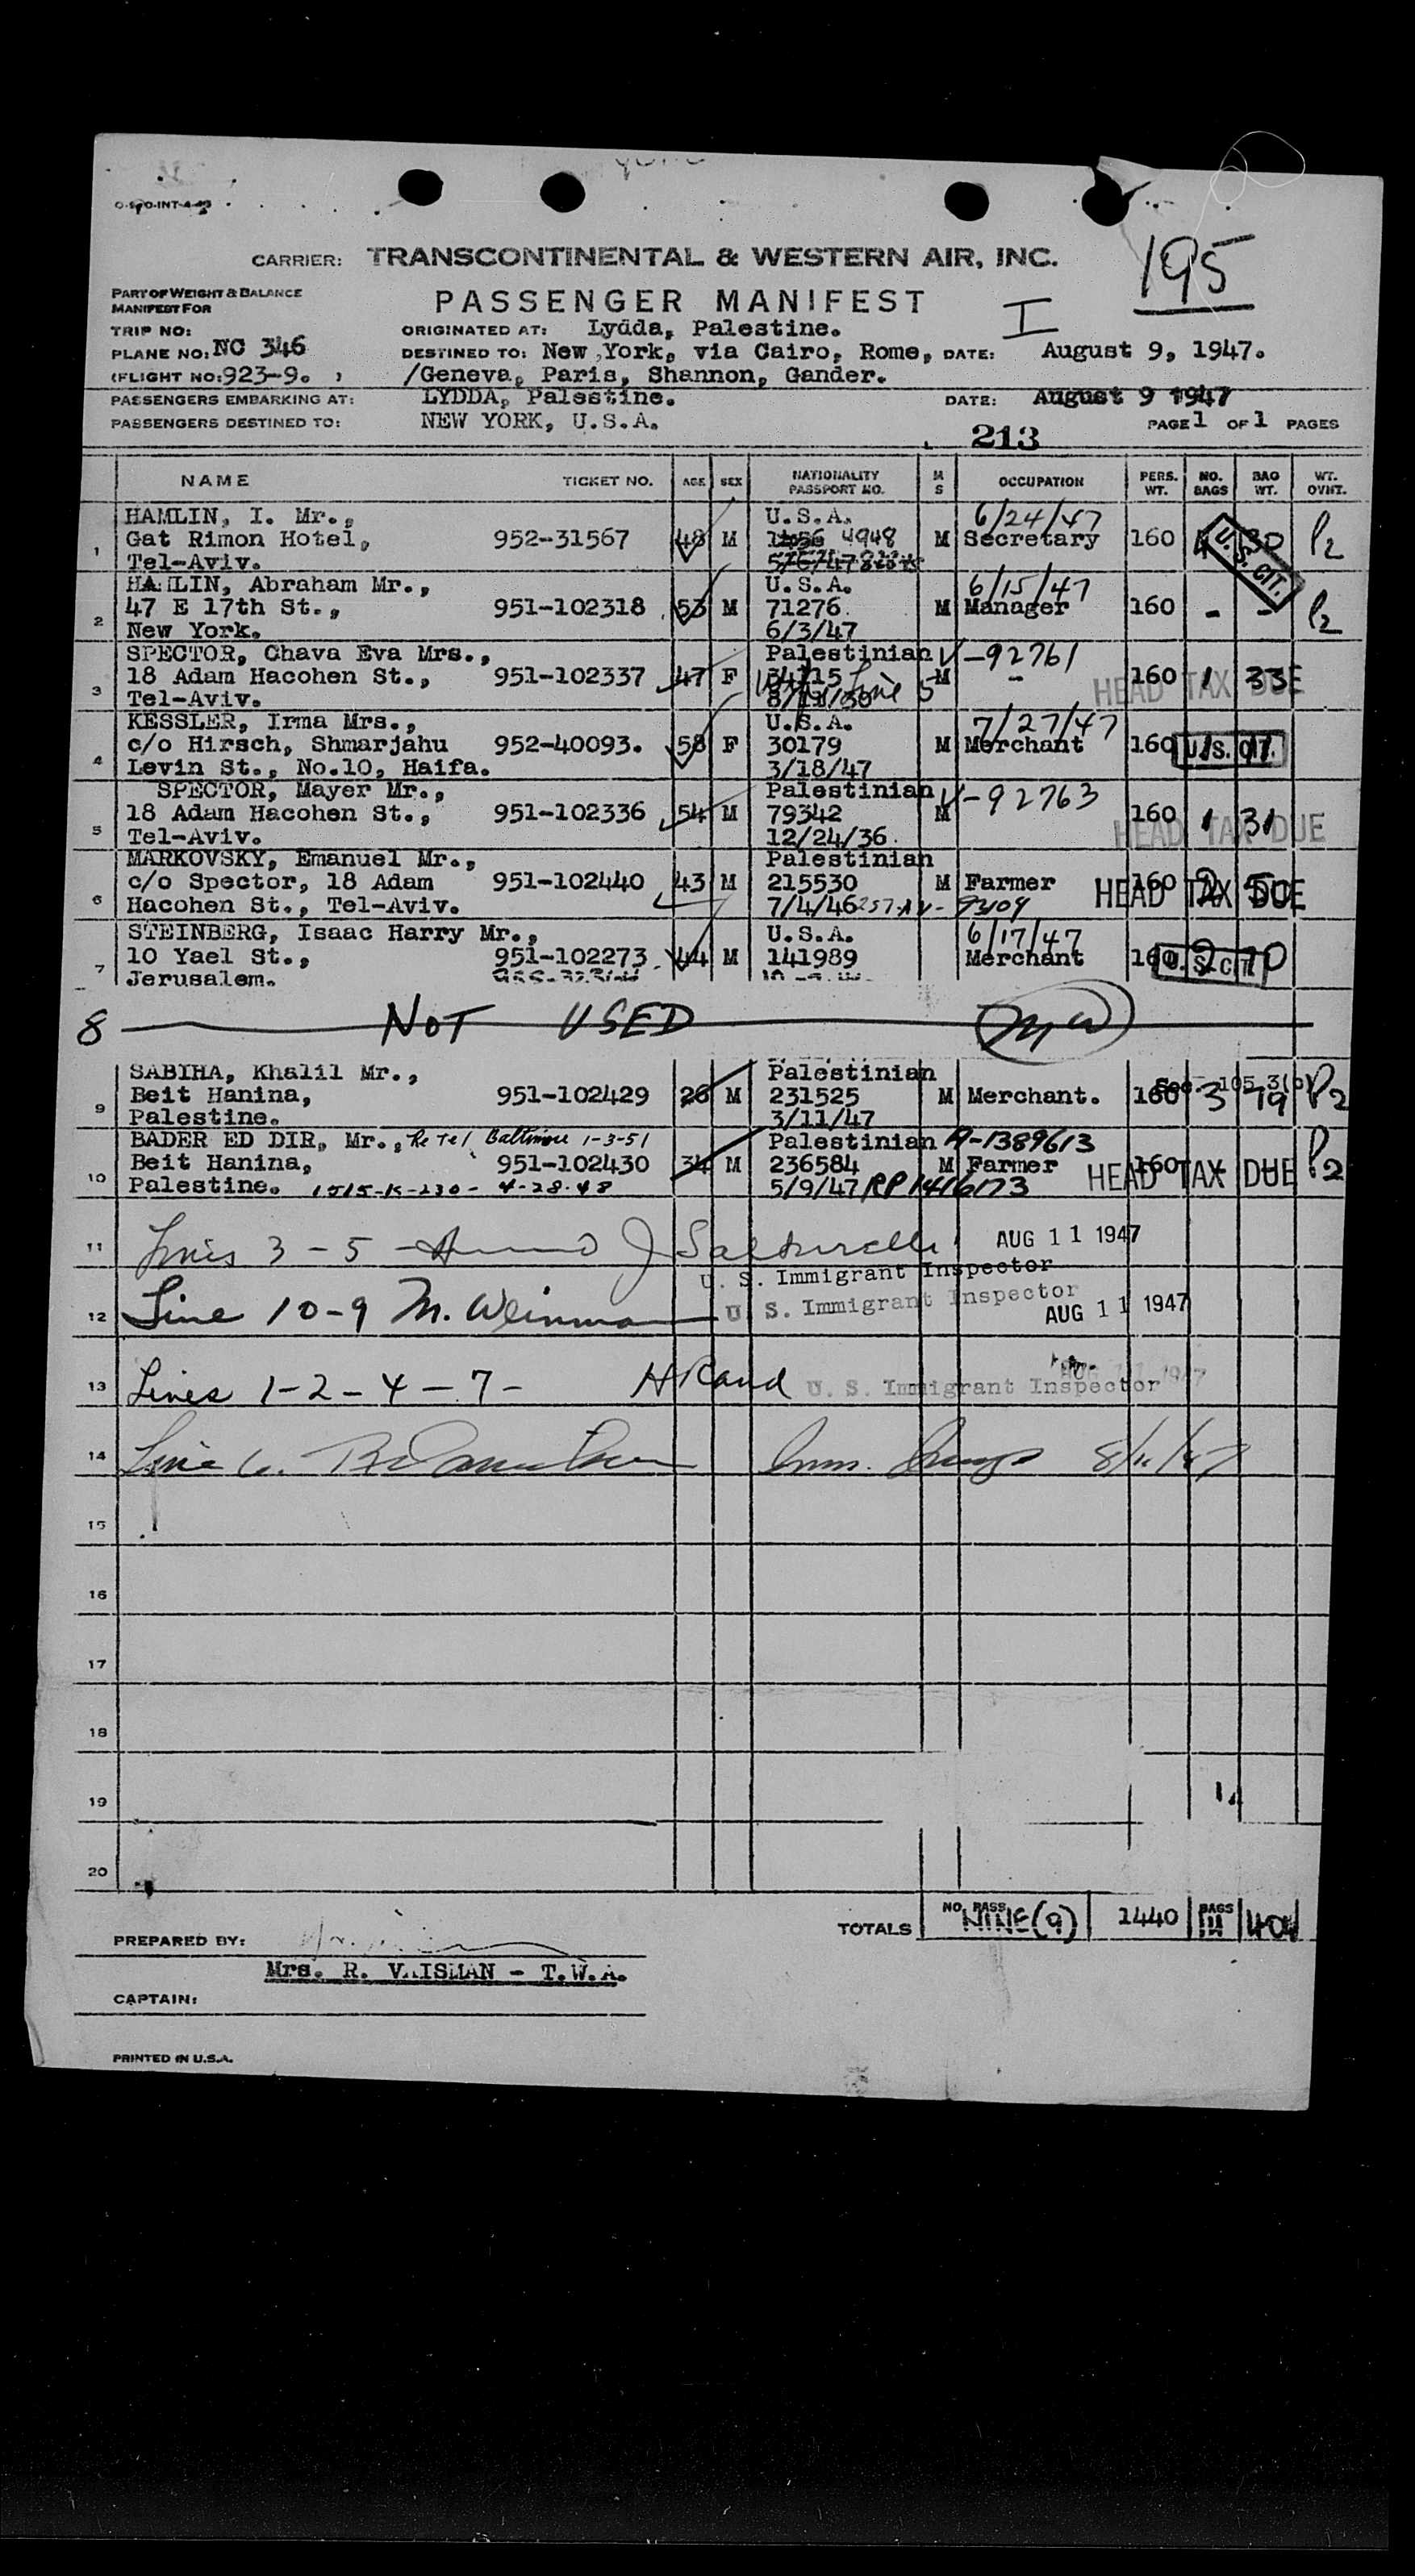 195
CARRIER: TRANSCONTINENTAL & WESTERN AIR, INC.
PART OF WEIGHT & BALANCE
MANIFEST FOR
PASSENGER MANIFEST
I
TRIP NO:
ORIGINATED AT: Lydda, Palestine.
PLANE NO: NC 346
DESTINED TO: New York, via Cairo, Rome, DATE: August 9, 1947.
(FLIGHT NO: 923-9. )
/Geneva, Paris, Shannon, Gander.
PASSENGERS EMBARKING AT: LYDDA, Palestine. DATE: August 9 1947
PASSENGERS DESTINED TO: NEW YORK, U.S.A. 213 PAGE 1 OF 1 PAGES
NAME TICKET NO. AGE SEX NATIONALITY PASSPORT NO. M S OCCUPATION PERS. WT. NO. BAGS BAG WT. WT. OVHT.
HAMLIN, I. Mr., U.S.A. 6/24/47
1 Gat Rimon Hotel, 952-31567 48 M 4948 M Secretary 160 30 P2
Tel-Aviv. U.S. CIT.
HAMLIN, Abraham Mr., U.S.A. 6/15/47
2 47 E 17th St., 951-102318 53 M 71276 M Manager 160 - - P2
New York. 6/3/47
SPECTOR, Chava Eva Mrs., Palestinian V-92761
3 18 Adam Hacohen St., 951-102337 47 F M - 160 1 33
Tel-Aviv. HEAD TAX DUE
KESSLER, Irma Mrs., U.S.A. 7/27/47
4 c/o Hirsch, Shmarjahu 952-40093. 58 F 30179 M Merchant 160 U.S. CIT.
Levin St., No.10, Haifa. 3/18/47
SPECTOR, Mayer Mr., Palestinian V-92763
5 18 Adam Hacohen St., 951-102336 54 M 79342 M 160 1 31
Tel-Aviv. 12/24/36. HEAD TAX DUE
MARKOVSKY, Emanuel Mr., Palestinian
6 c/o Spector, 18 Adam 951-102440 43 M 215530 M Farmer 160 2 50 HEAD TAX DUE
Hacohen St., Tel-Aviv. 7/4/46
STEINBERG, Isaac Harry Mr., U.S.A. 6/17/47
7 10 Yael St., 951-102273 44 M 141989 Merchant 160 2 U.S. CIT.
Jerusalem.
8 NOT USED MW
SABIHA, Khalil Mr., Palestinian
9 Beit Hanina, 951-102429 26 M 231525 M Merchant. 160 3 79 P2
Palestine. 3/11/47
BADER ED DIR, Mr., Re Tel Baltimore 1-3-51 Palestinian A-1389613
10 Beit Hanina, 951-102430 34 M 236584 M Farmer 160 - - HEAD TAX DUE P2
Palestine. 1515-K-230- 4-28-48 5/9/47 RP1416173
11 Lines 3-5 AUG 11 1947
U. S. Immigrant Inspector
12 Line 10-9 M. Weinman U. S. Immigrant Inspector
AUG 11 1947
13 Lines 1-2-4-7- H Rand U. S. Immigrant Inspector
14 Line 6. 8/11/47
15
16
17
18
19
20
TOTALS NO. PASS. NINE (9) 1440 BAGS 404
PREPARED BY:
Mrs. R. VAISMAN - T.W.A.
CAPTAIN:
PRINTED IN U.S.A.